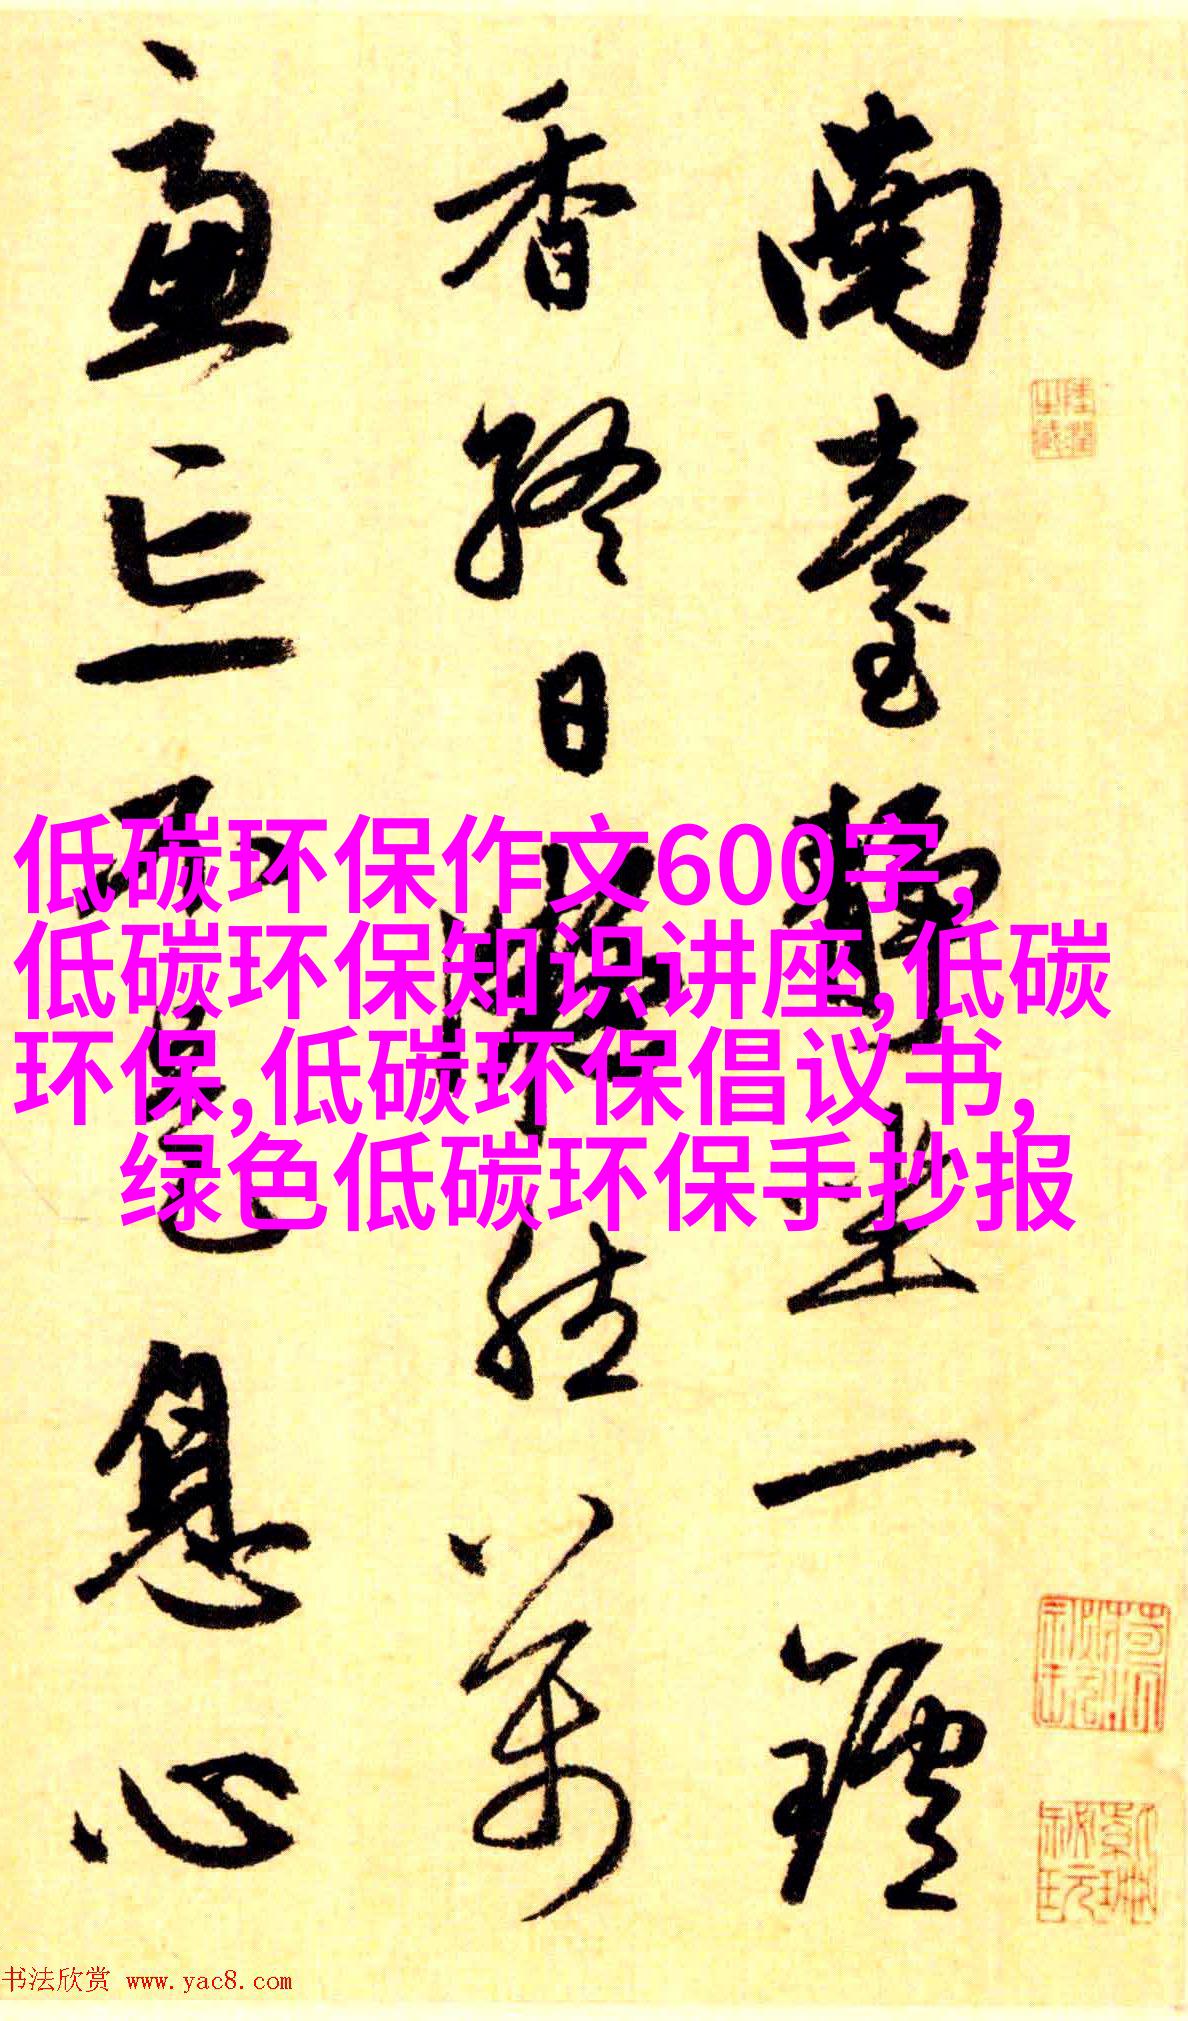 南臺靜坐一鑪
香終日凝然萬
慮亡不是息心
低碳环保作文600字,
低碳环保知识讲座,低碳
环保,低碳环保倡议书,
绿色低碳环保手抄报
书法欣赏 www.yac8.com